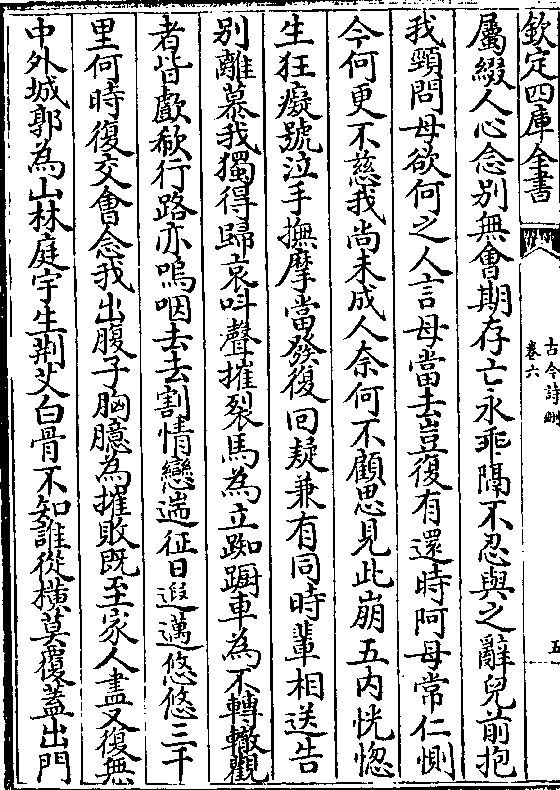 欽定四庫全書
古今詩刪
卷六
五
屬綴人心念别無會期存亡永乖隔不忍與之辭兒前抱
我頸問母欲何之人言母當去豈復有還時阿母常仁惻
今何更不慈我尚未成人奈何不顧思見此崩五内恍惚
生狂癡號泣手撫摩當發復回疑兼有同時輩相送告
别離慕我獨得歸哀呌聲摧裂馬為立踟蹰車為不轉轍觀
者皆歔欷行路亦嗚咽去去割情戀遄征日遐邁悠悠三千
里何時復交會念我出腹子胸臆為摧敗既至家人盡又復無
中外城郭為山林庭宇生荆艾白骨不知誰從橫莫覆蓋出門